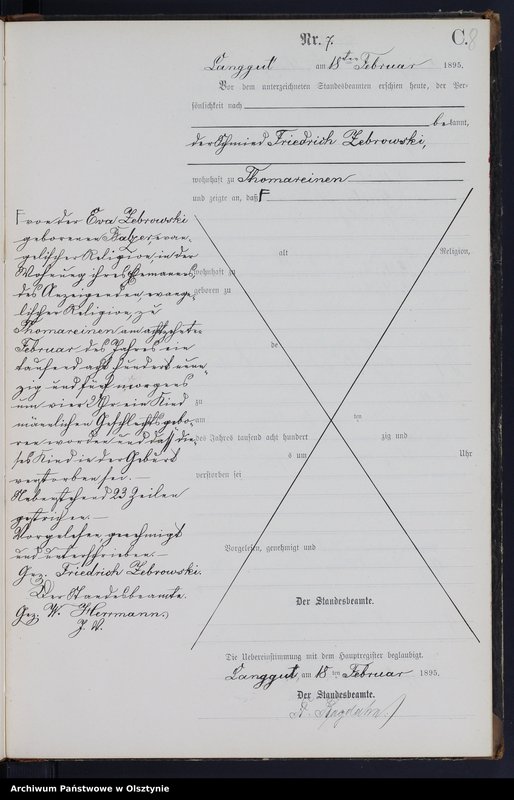 Nr. 7. C. 8
Langgut am 18ten Februar 1895.
Vor dem unterzeichneten Standesbeamten erschien heute, der Per-
sönlichkeit nach
bekannt,
der Schmied Friedrich Zebrowski,
wohnhaft zu Thomareinen
und zeigte an, daß F
F von der Eva Zebrowski
geborenen evan-
gelischer Religion, in der
Wohnung ihres Ehemannes
des Anzeigenden evange-
lischer Religion, zu
Thomareinen am achtzehnten
Februar des Jahres ein
tausend acht hundert neun-
zig und fünf morgens
um vier Uhr ein Kind
männlichen Geschlechts gebo-
ren worden und daß die-
ses Kind in der Geburt
verstorben sei. —
Nebenstehend 23 Zeilen
gestrichen. —
Vorgelesen, genehmigt
und unterschrieben. —
Gez. Friedrich Zebrowski.
Der Standesbeamte.
Gez. W. Herrmann.
J. V.
alt Religion,
wohnhaft zu
geboren zu
de
zu
am ten
des Jahres tausend acht hundert zig und
s um Uhr
verstorben sei
Vorgelesen, genehmigt und
Der Standesbeamte.
Die Uebereinstimmung mit dem Hauptregister beglaubigt.
Langgut, am 18 ten Februar 1895.
Der Standesbeamte.
Archiwum Państwowe w Olsztynie